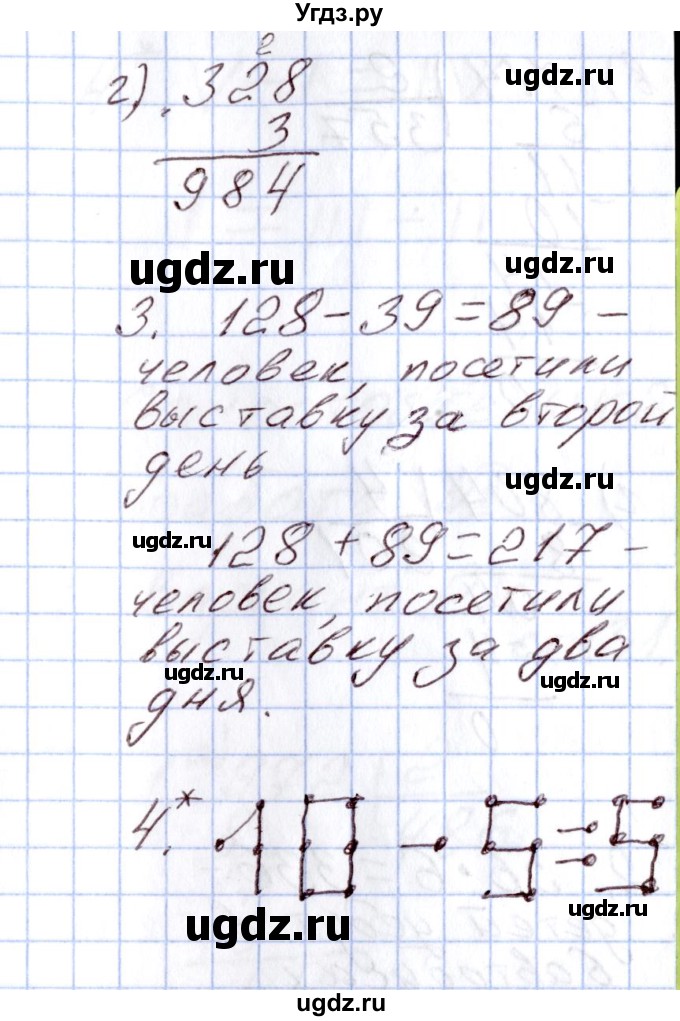 Угдз.ру
2
г). 328
ugdz.ru
3
984
ugdz.ru
ugdz.ru
3. 128 - 39 = 89 -
человек, посетили
выставку за второй
день
ugdz.ru
ugdz.ru
128 + 89 = 217 -
человек, посетили
выставку за два
ugdz.ru
ugdz.ru
дня.
4.* 10 - 5 = 5
ugdz.ru
ugdz.ru
ugdz.ru